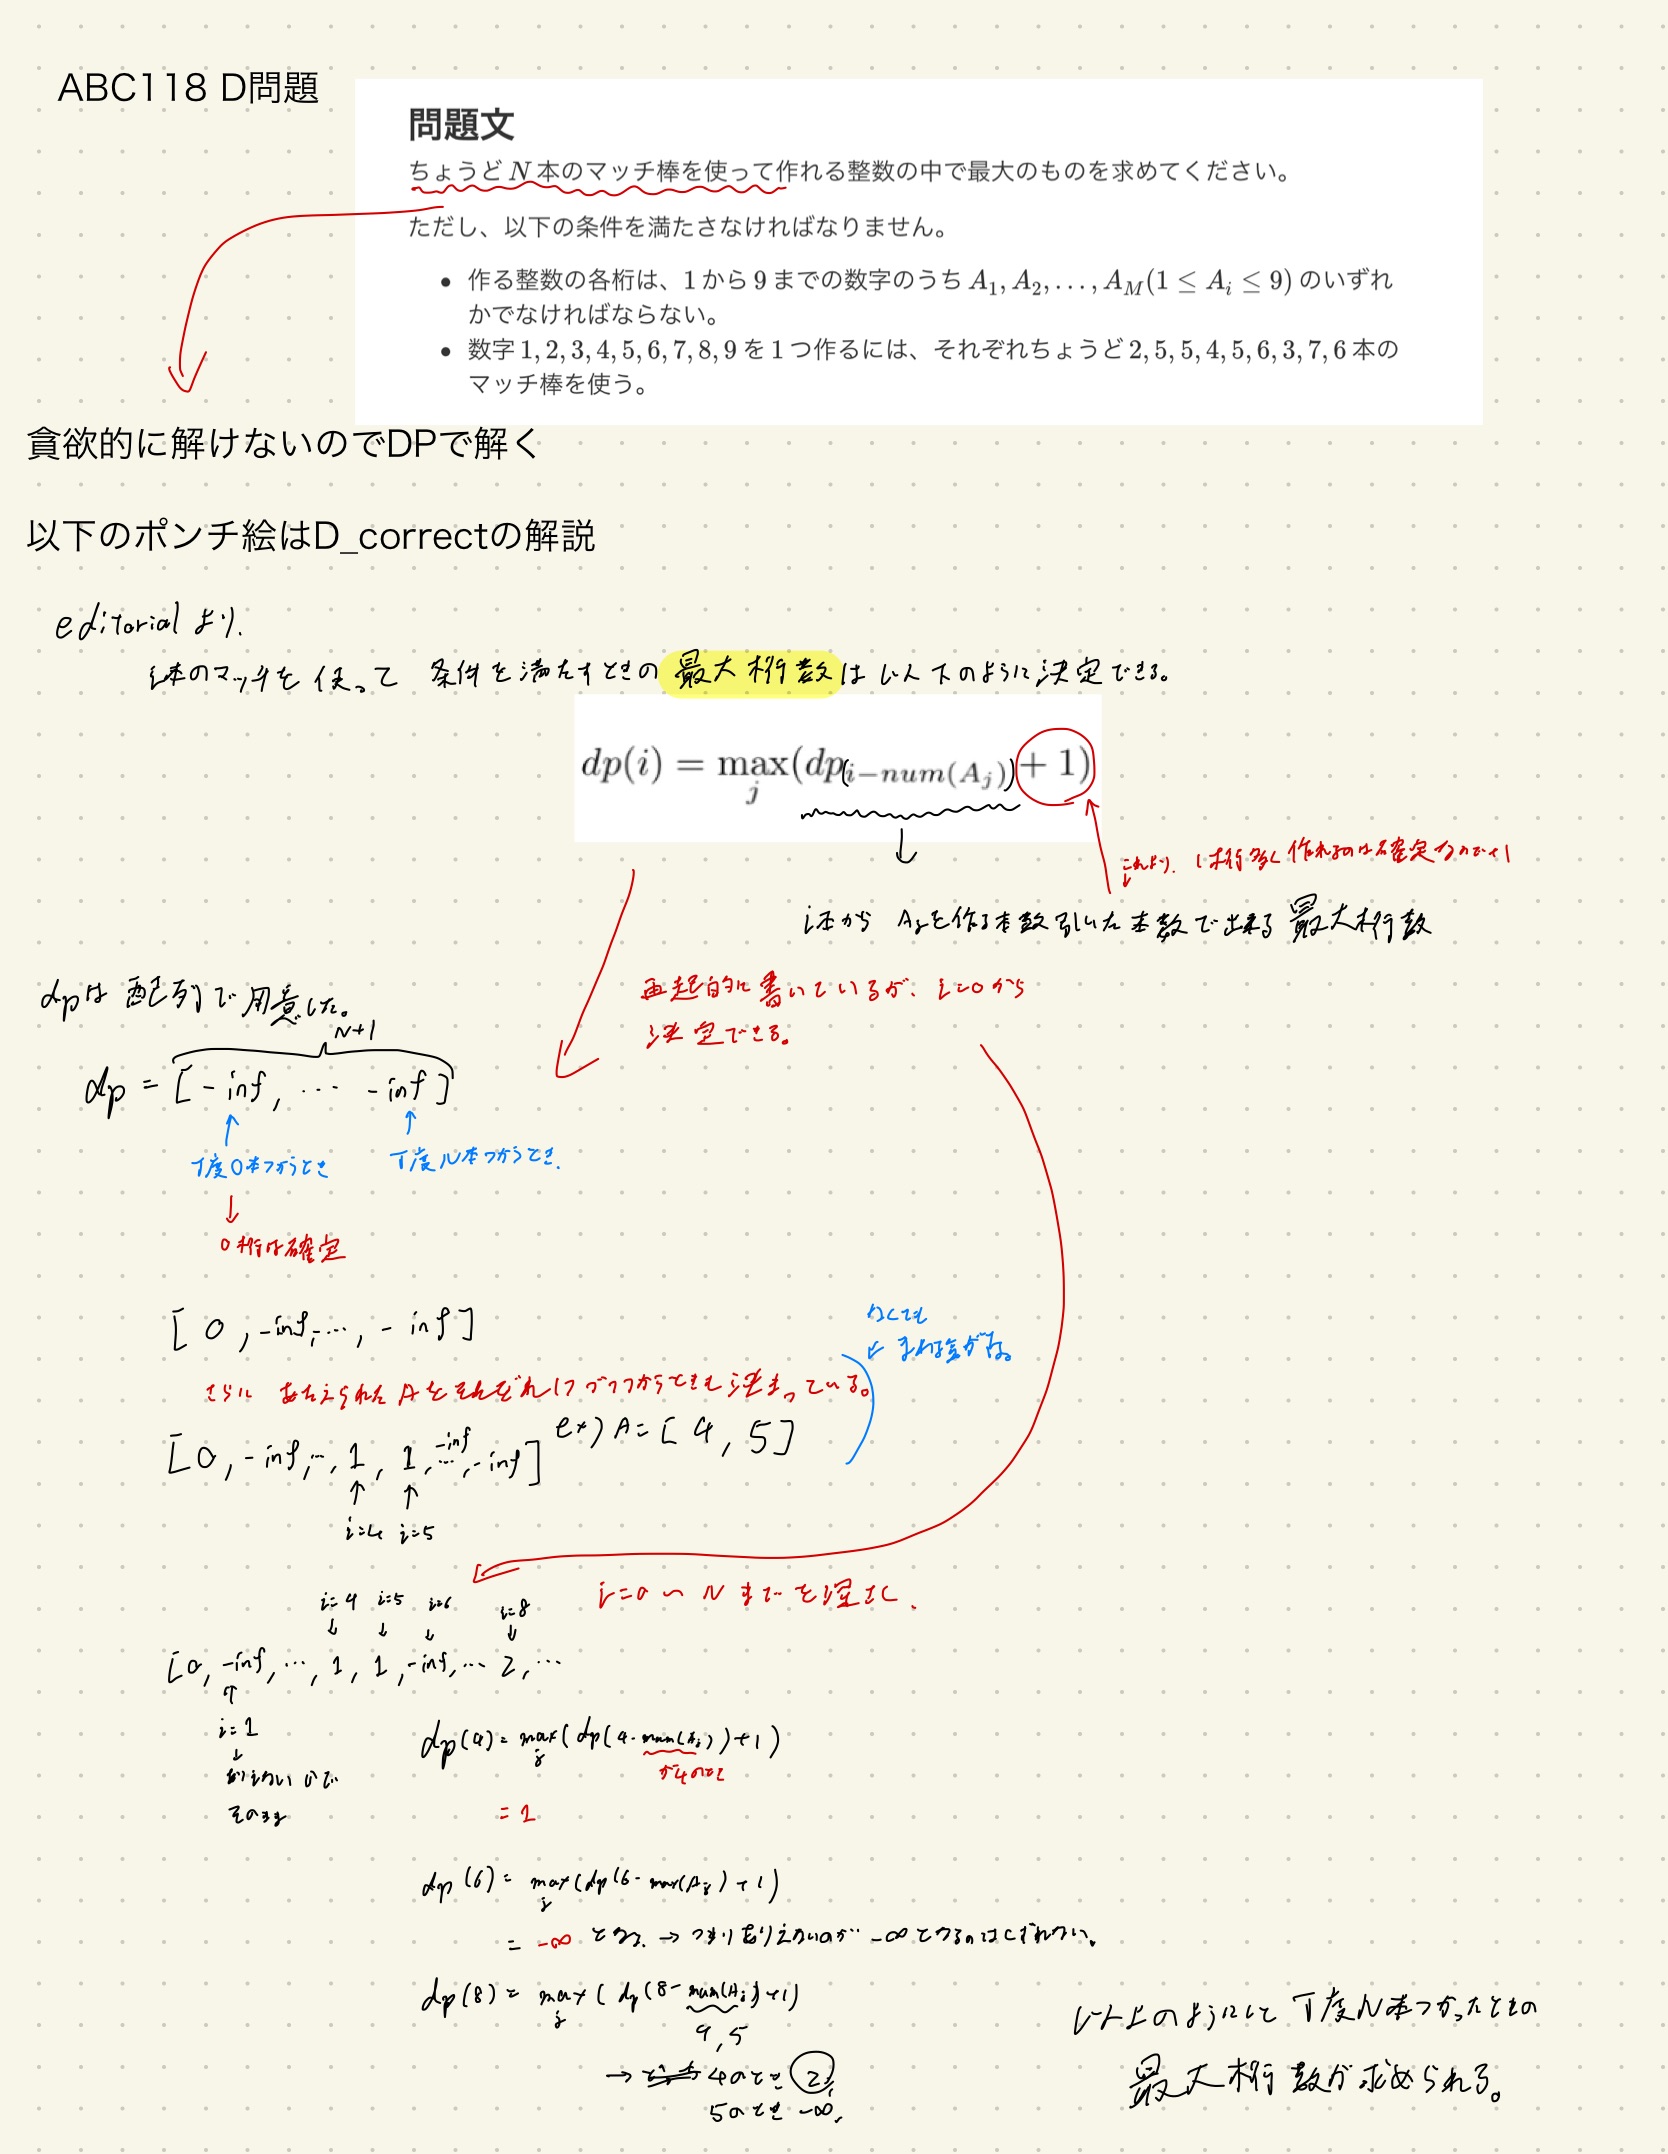 ABC118 D問題
問題文
ちょうど N 本のマッチ棒を使って作れる整数の中で最大のものを求めてください。
ただし、以下の条件を満たさなければなりません。
• 作る整数の各桁は、1 から 9 までの数字のうち A₁, A₂, …, A_M(1 ≤ A_i ≤ 9) のいずれ
かでなければならない。
• 数字 1, 2, 3, 4, 5, 6, 7, 8, 9 を 1 つ作るには、それぞれちょうど 2, 5, 5, 4, 5, 6, 3, 7, 6 本の
マッチ棒を使う。
貪欲的に解けないのでDPで解く
以下のポンチ絵はD_correctの解説
editorialより.
i本のマッチを使って 条件を満たすときの最大桁数は以下のように決定できる。
dp(i) = max_j(dp(i−num(A_j)) + 1)
これより、1桁多く作れるのは確定なので+1
i本から Ajを作る本数引いた本数で出来る最大桁数
再起的に書いているが、i=0から
決定できる。
dpは配列で用意した。
N+1
dp = [-inf, … -inf]
丁度0本つかうとき
丁度N本つかうとき.
0桁は確定
[0, -inf, …, -inf]
なくても
さらに あたえられたAをそれぞれ1つづつつかうときも決まっている。
[0, -inf, …, 1, 1, -inf, …, -inf] ex) A=[4, 5]
i=4 i=5
i=0 〜 N までを埋めて.
i=4 i=5 i=6 i=8
[0, -inf, …, 1, 1, -inf, … 2, …
i=1
ありえないので
そのまま
dp(4) = max_j(dp(4-num(Aj))+1)
が4のとき
= 1
dp(6) = max_j(dp(6-num(Aj))+1)
= -∞ となる. → つまりありえないのが -∞となるのはくずれない。
dp(8) = max_j(dp(8-num(Aj))+1)
4, 5
→ 4のとき 2,
5のとき -∞,
以上のようにして丁度N本つかったときの
最大桁数が求められる。